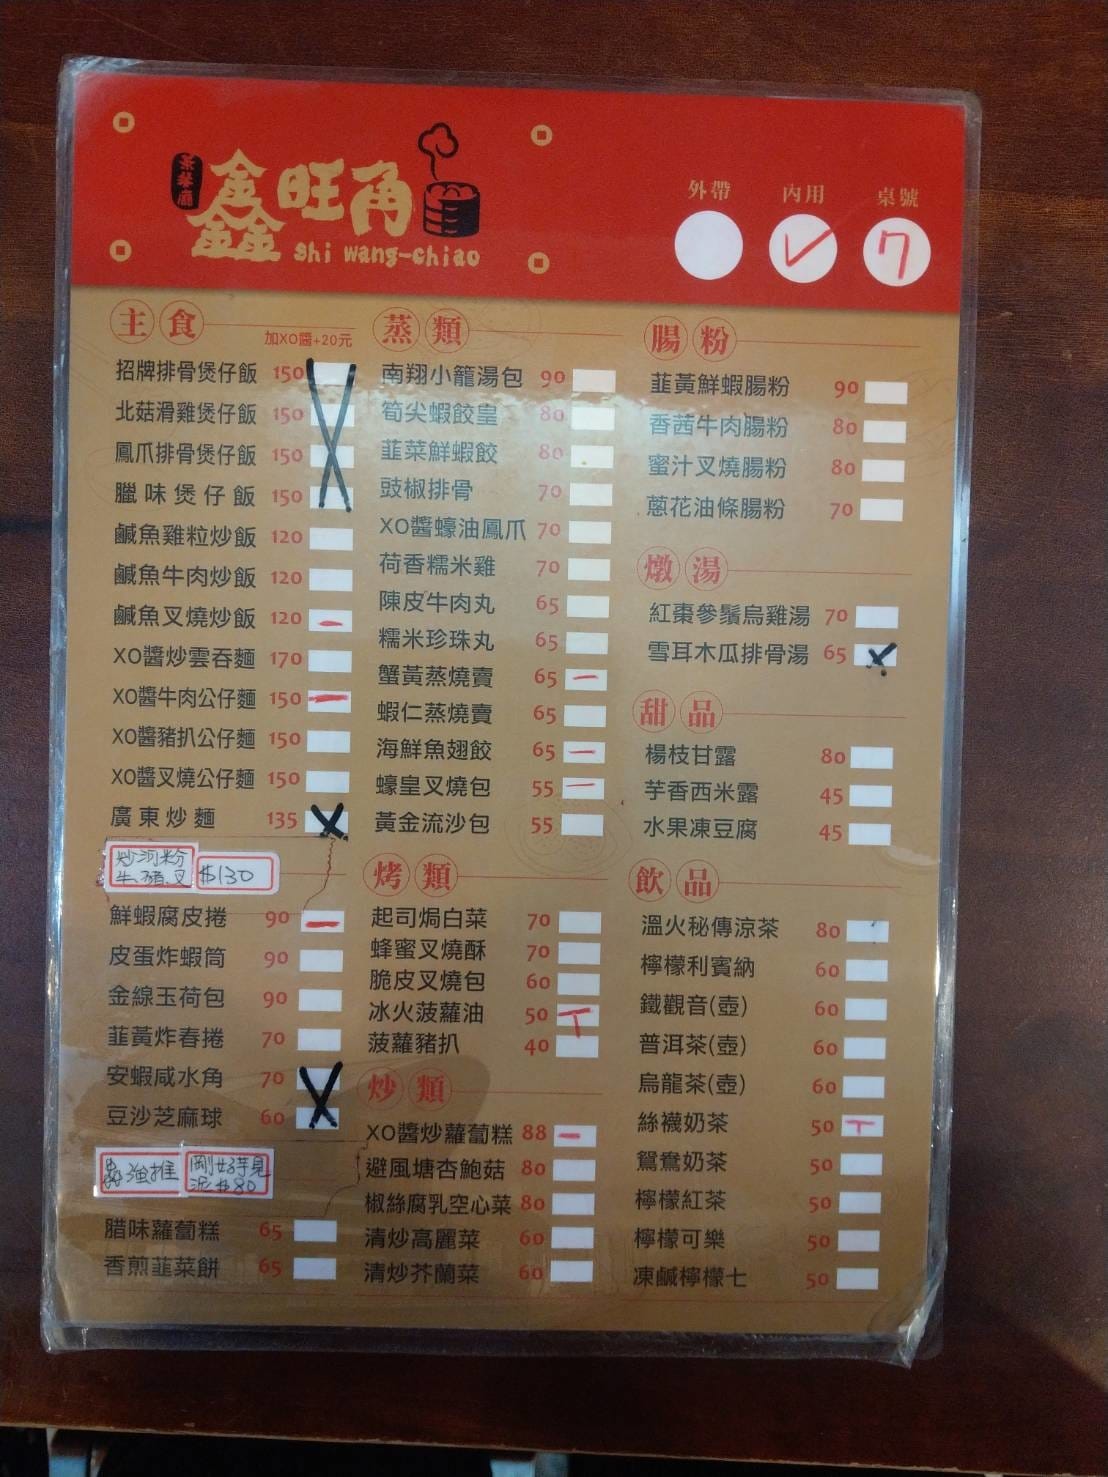 茶餐廳
鑫旺角
shi wang-chiao
外帶 內用 桌號
✓ 7
主食 加XO醬+20元
招牌排骨煲仔飯 150
北菇滑雞煲仔飯 150
鳳爪排骨煲仔飯 150
臘味煲仔飯 150
鹹魚雞粒炒飯 120
鹹魚牛肉炒飯 120
鹹魚叉燒炒飯 120
XO醬炒雲吞麵 170
XO醬牛肉公仔麵 150
XO醬豬扒公仔麵 150
XO醬叉燒公仔麵 150
廣東炒麵 135
炒河粉
牛.豬.叉 $130
鮮蝦腐皮捲 90
皮蛋炸蝦筒 90
金線玉荷包 90
韮黃炸春捲 70
安蝦咸水角 70
豆沙芝麻球 60
強推 剛好芋見
泥$80
腊味蘿蔔糕 65
香煎韮菜餅 65
蒸類
南翔小籠湯包 90
筍尖蝦餃皇 80
韮菜鮮蝦餃 80
豉椒排骨 70
XO醬蠔油鳳爪 70
荷香糯米雞 70
陳皮牛肉丸 65
糯米珍珠丸 65
蟹黃蒸燒賣 65
蝦仁蒸燒賣 65
海鮮魚翅餃 65
蠔皇叉燒包 55
黃金流沙包 55
烤類
起司焗白菜 70
蜂蜜叉燒酥 70
脆皮叉燒包 60
冰火菠蘿油 50
菠蘿豬扒 40
炒類
XO醬炒蘿蔔糕 88
避風塘杏鮑菇 80
椒絲腐乳空心菜 80
清炒高麗菜 60
清炒芥蘭菜 60
腸粉
韮黃鮮蝦腸粉 90
香茜牛肉腸粉 80
蜜汁叉燒腸粉 80
蔥花油條腸粉 70
燉湯
紅棗參鬚烏雞湯 70
雪耳木瓜排骨湯 65
甜品
楊枝甘露 80
芋香西米露 45
水果凍豆腐 45
飲品
溫火秘傳涼茶 80
檸檬利賓納 60
鐵觀音(壺) 60
普洱茶(壺) 60
烏龍茶(壺) 60
絲襪奶茶 50
鴛鴦奶茶 50
檸檬紅茶 50
檸檬可樂 50
凍鹹檸檬七 50